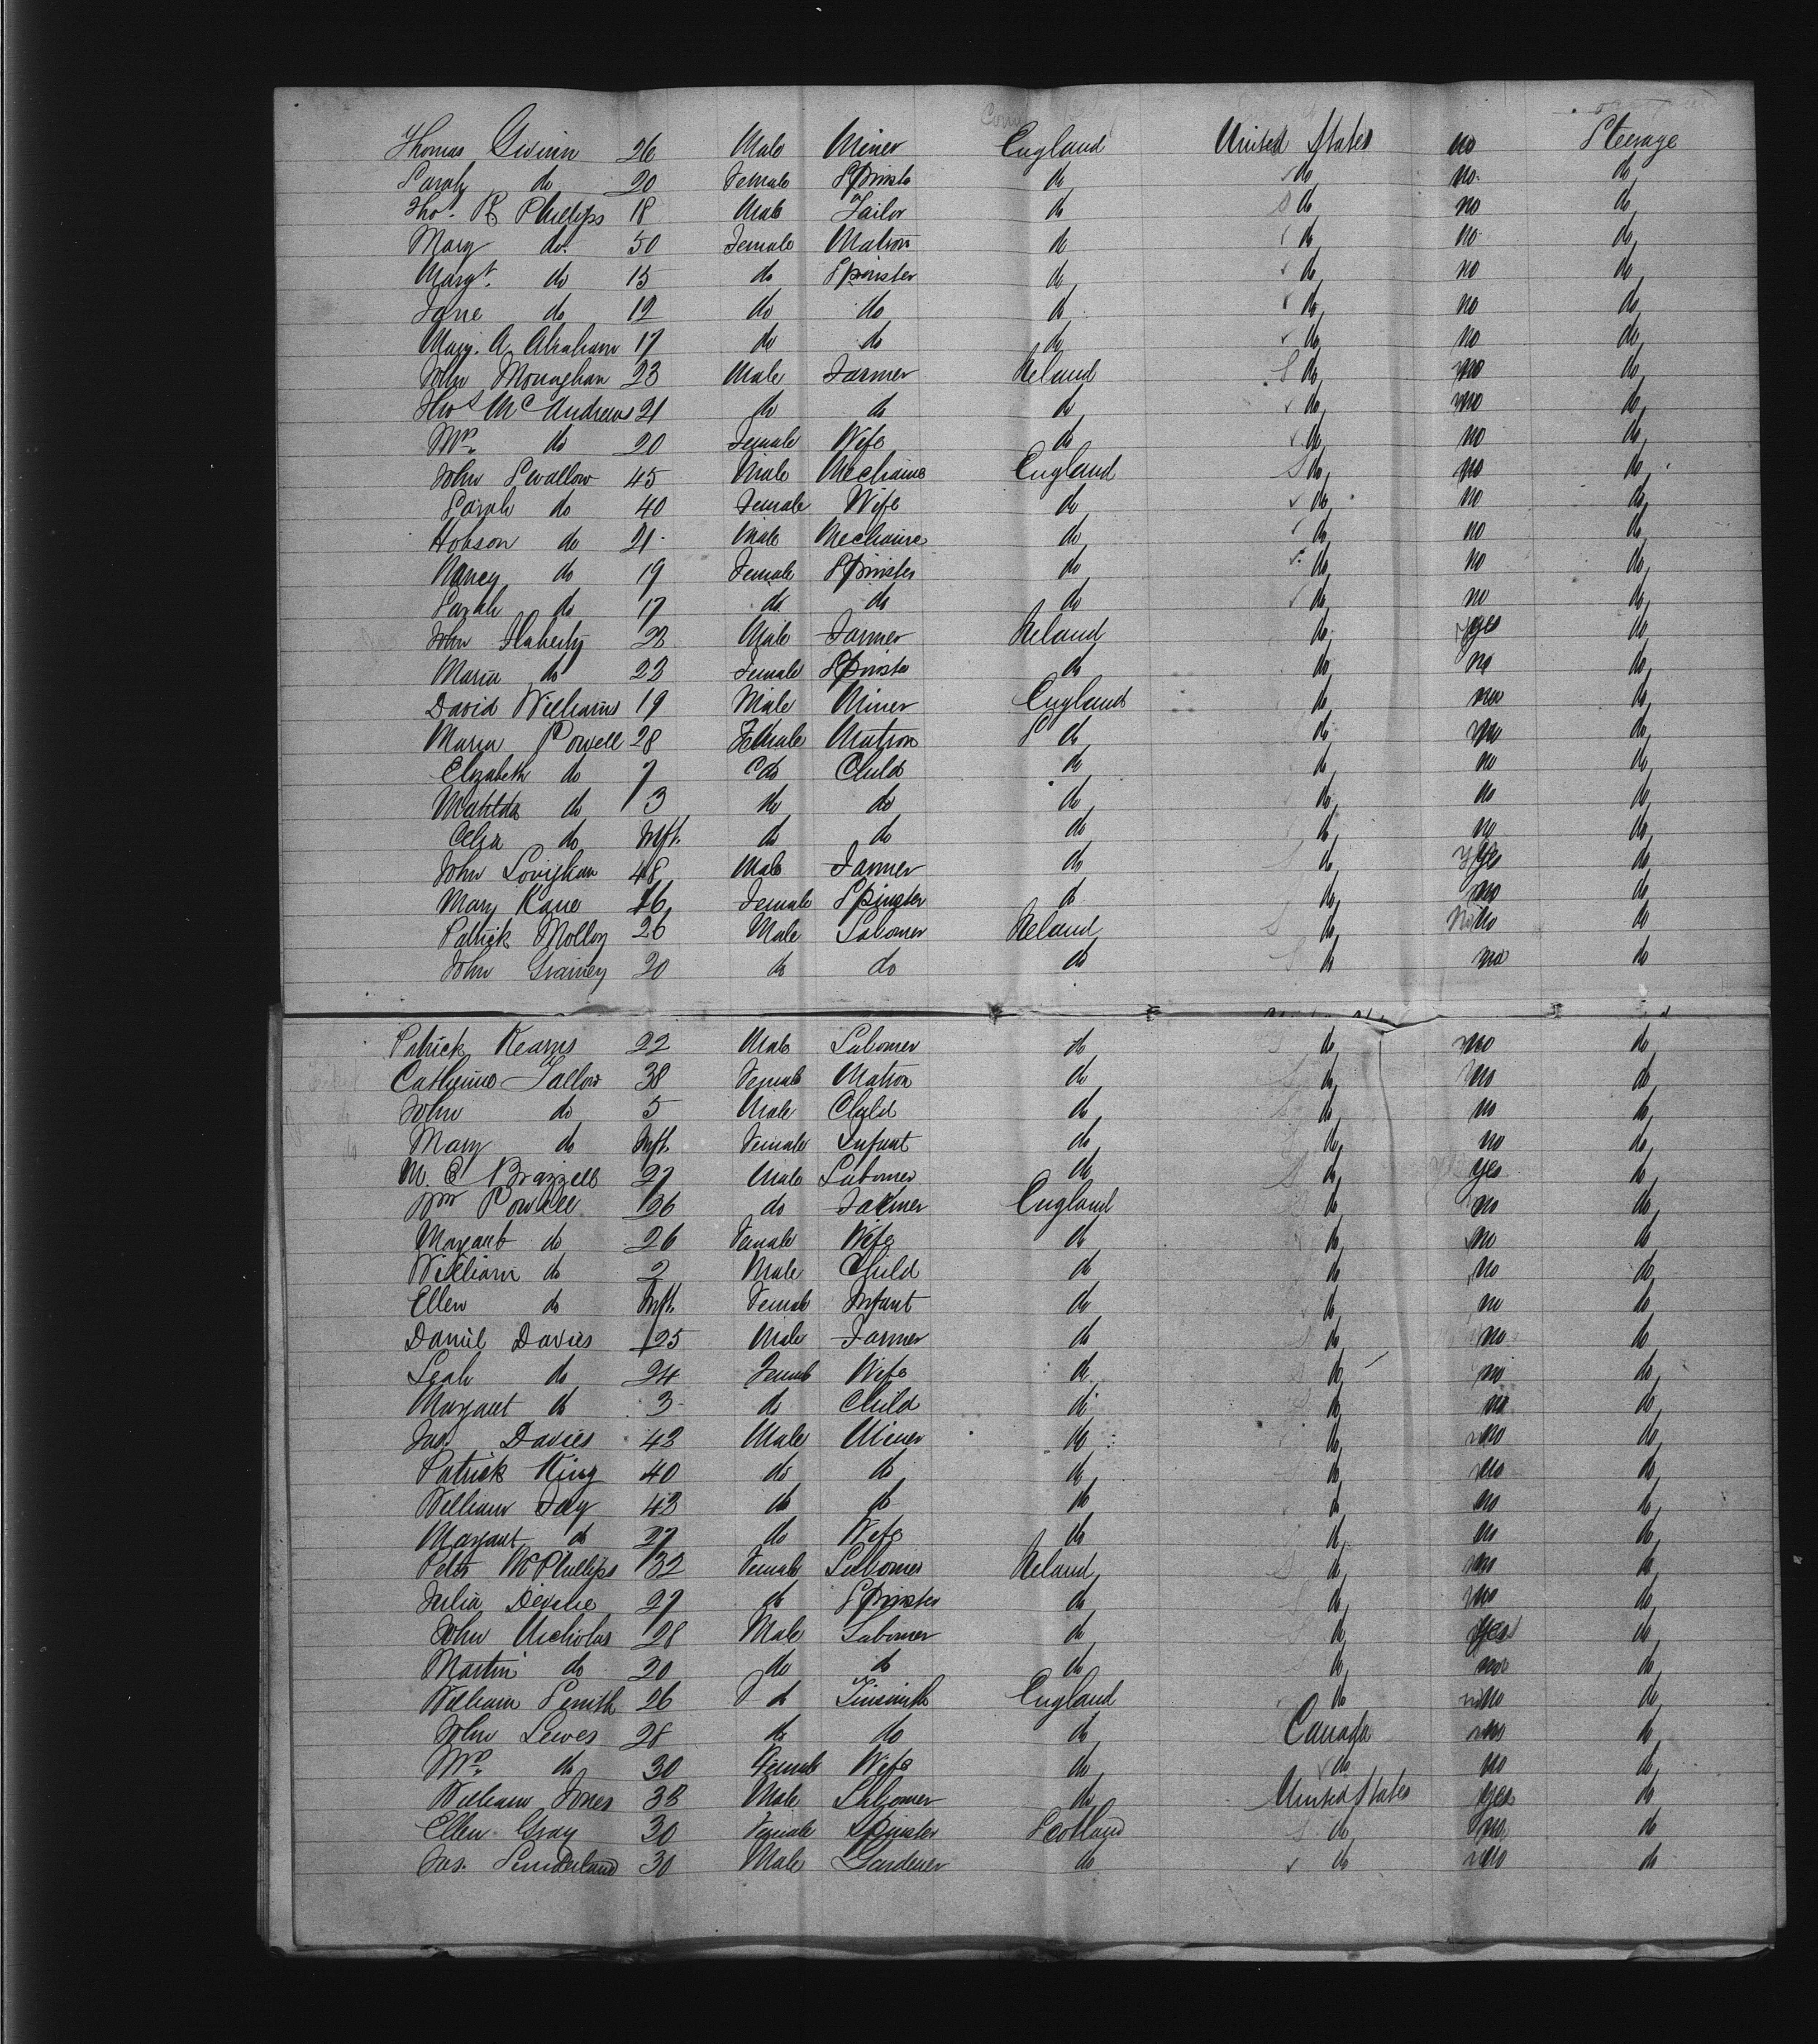 Thomas Gwinn 26 Male Miner England United States no Steerage
Sarah do 20 Female Spinster do do no do
Thos. R Phillips 18 Male Tailor do do no do
Mary do 50 Female Matron do do no do
Margt. do 15 do Spinster do do no do
Jane do 12 do do do do no do
Mary. A. Abraham 17 do do do do no do
John Monaghan 23 Male Farmer Ireland do no do
Thos McAndrews 21 do do do do no do
Mrs. do 20 Female Wife do do no do
John Swallow 45 Male Mechanic England do no do
Sarah do 40 Female Wife do do no do
Hobson do 21 Male Mechanic do do no do
Nancy do 19 Female Spinster do do no do
Sarah do 17 do do do do no do
John Flaherty 23 Male Farmer Ireland do yes do
Maria do 23 Female Spinster do do no do
David Williams 19 Male Miner England do no do
Maria Powell 28 Female Matron do do no do
Elizabeth do 7 do Child do do no do
Matilda do 3 do do do do no do
Celia do Inft. do do do do no do
John 48 Male Farmer do do yes do
Mary Kane 16 Female Spinster do do no do
Patrick Molloy 26 Male Labourer Ireland do no do
John Grainey 20 do do do do no do
Patrick Kearns 22 Male Labourer do do no do
Catherine Fallow 38 Female Matron do do no do
John do 5 Male Child do do no do
Mary do Inft. Female Infant do do no do
M. C Brazzell 27 Male Labourer do do yes do
Wm Powell 26 do Farmer England do no do
Margaret do 26 Female Wife do do no do
William do 2 Male Child do do no do
Ellen do Inft. Female Infant do do no do
Daniel Davies 25 Male Farmer do do no do
Leah do 24 Female Wife do do no do
Margaret do 3 do Child do do no do
Jas. Davies 43 Male Miner do do no do
Patrick King 40 do do do do no do
William Fay 43 do do do do no do
Margaret do 27 do Wife do do no do
Peter McPhillips 32 Female Labourer Ireland do no do
Julia 27 do Spinster do do no do
John Nicholas 28 Male Labourer do do yes do
Martin do 20 do do do do no do
William Smith 26 do Tinsmith England do no do
John Lewes 28 do do do Canada no do
Mrs. do 30 Female Wife do do no do
William Jones 38 Male Labourer do United States yes do
Ellen Gray 30 Female Spinster Scotland do no do
Jas. Sunderland 30 Male Gardener do do no do